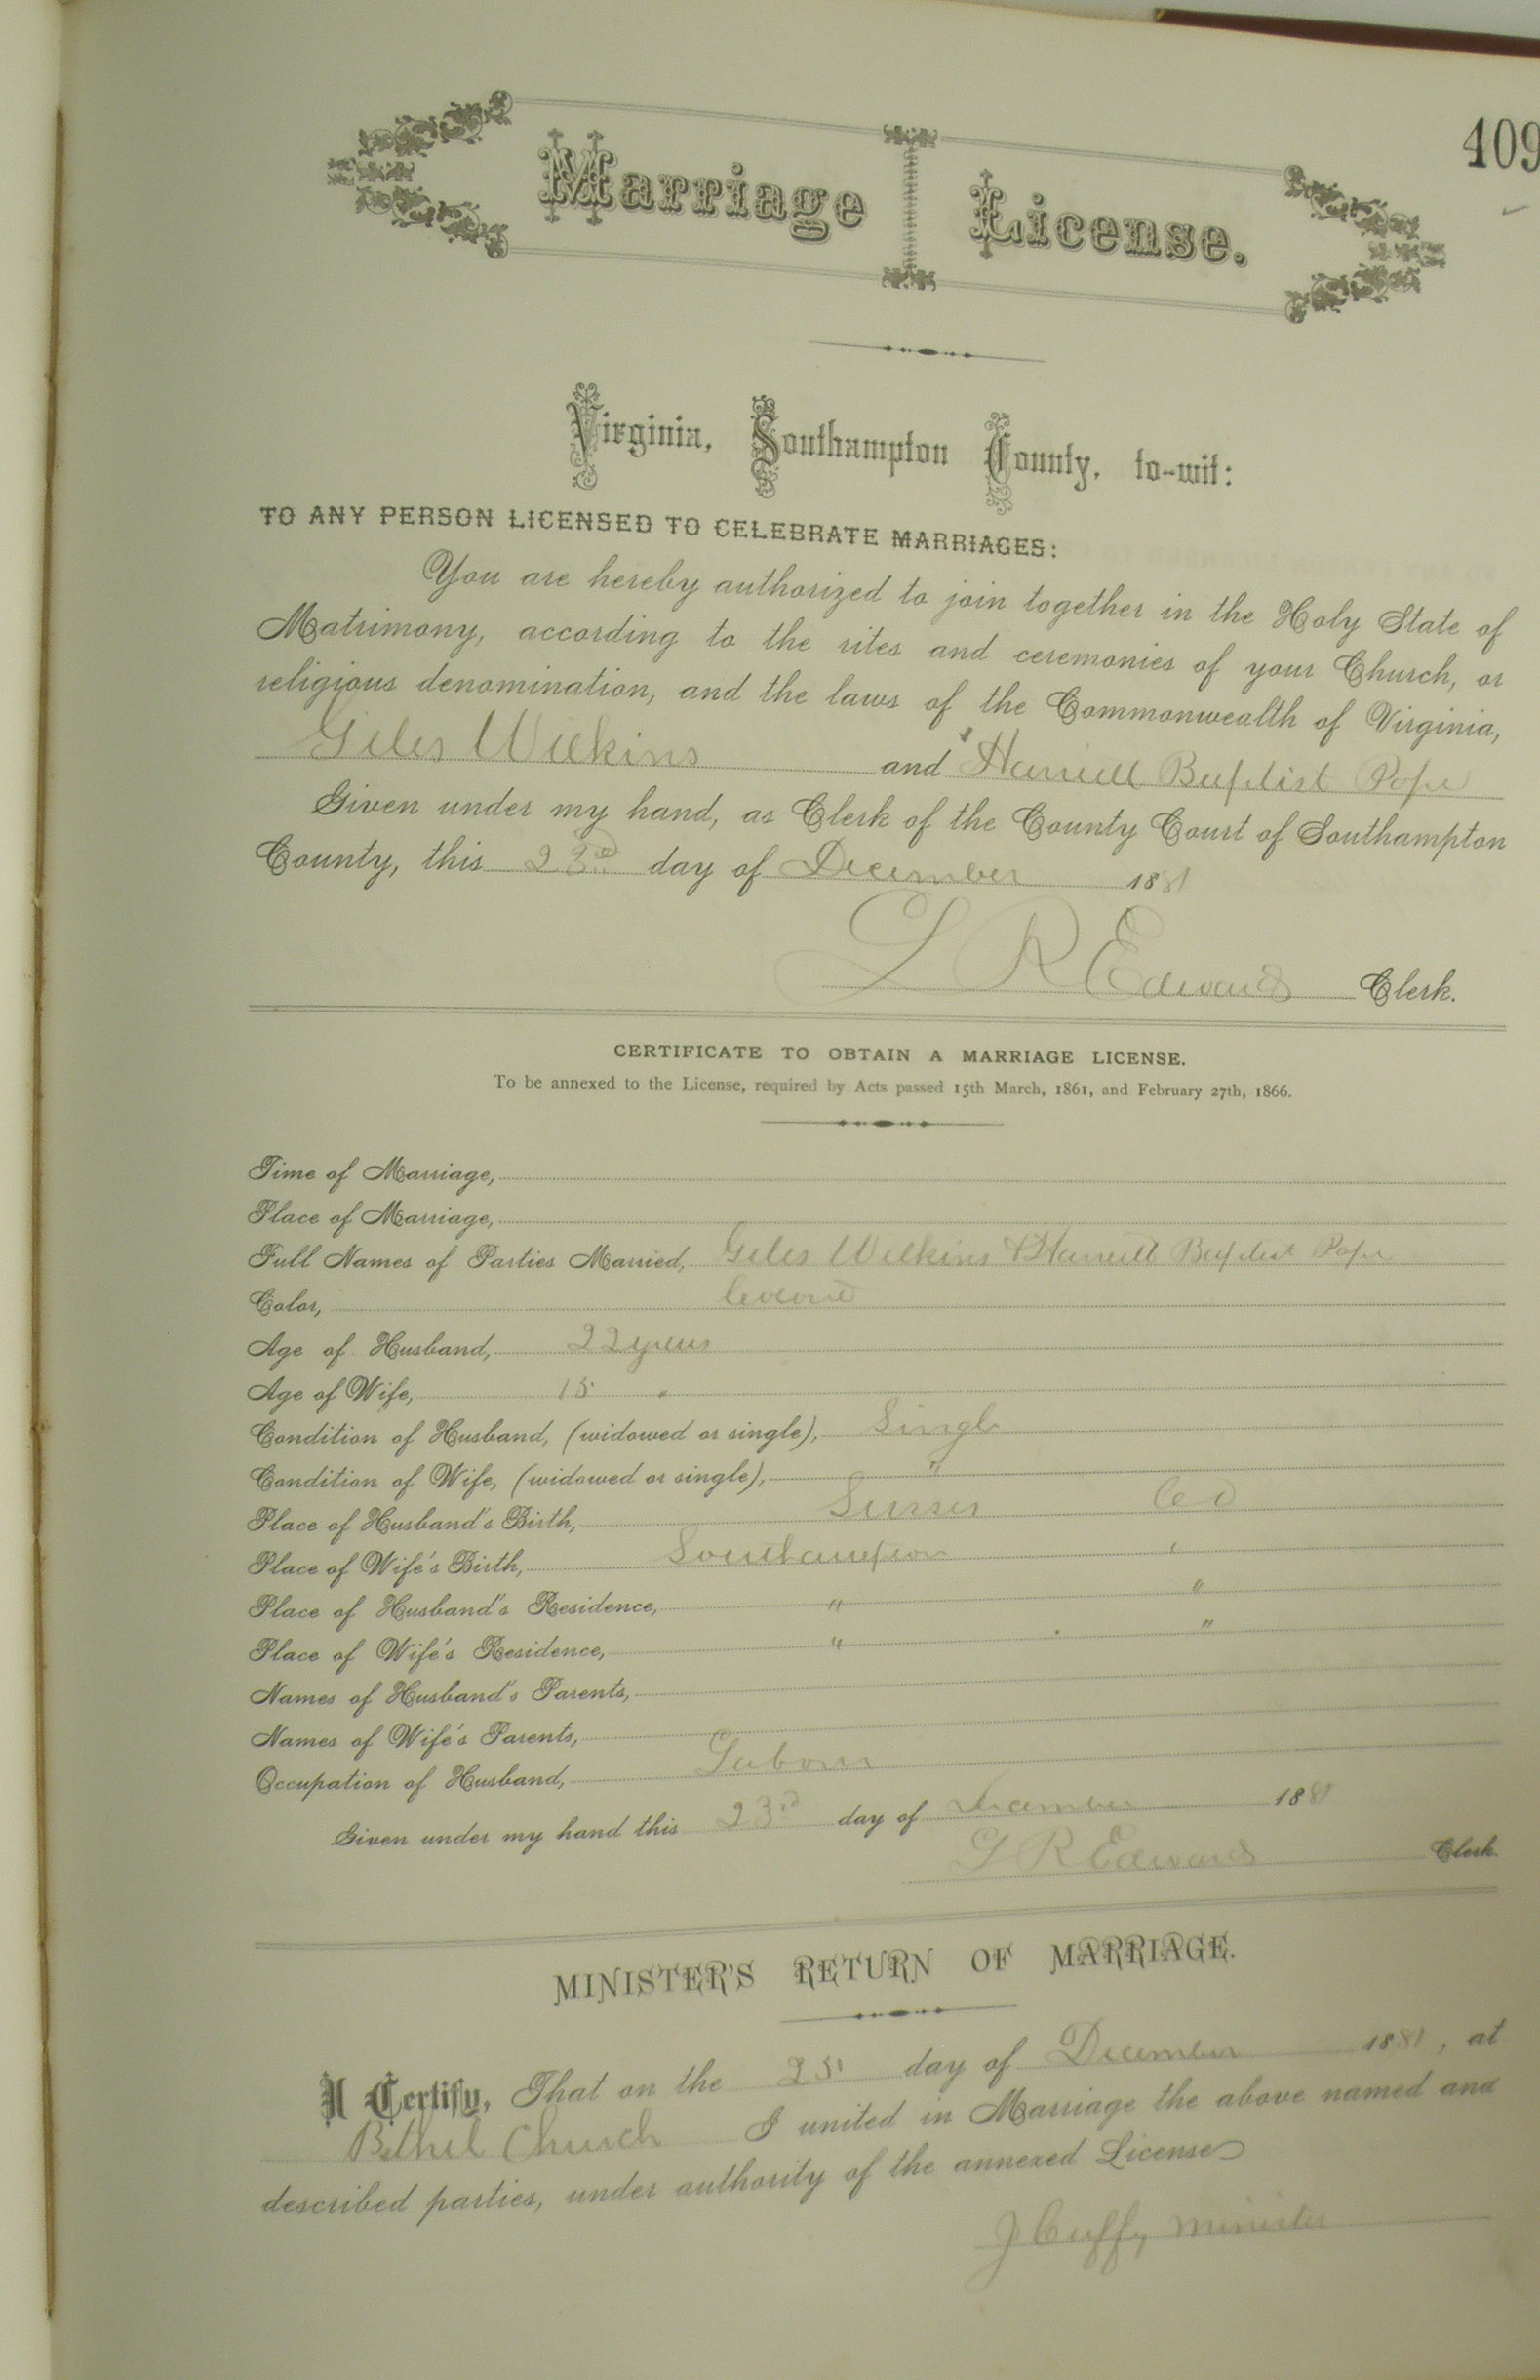 409
Marriage License.
Virginia, Southampton County, to-wit:
TO ANY PERSON LICENSED TO CELEBRATE MARRIAGES:
You are hereby authorized to join together in the Holy State of
Matrimony, according to the rites and ceremonies of your Church, or
religious denomination, and the laws of the Commonwealth of Virginia,
Giles Wilkins and Harriett Baptist Pope
Given under my hand, as Clerk of the County Court of Southampton
County, this 23rd day of December 1881
L R Edwards Clerk.
CERTIFICATE TO OBTAIN A MARRIAGE LICENSE.
To be annexed to the License, required by Acts passed 15th March, 1861, and February 27th, 1866.
Time of Marriage,
Place of Marriage,
Full Names of Parties Married, Giles Wilkins & Harriett Baptist Pope
Color, Colored
Age of Husband, 22 years
Age of Wife, 18 "
Condition of Husband, (widowed or single), Single
Condition of Wife, (widowed or single), "
Place of Husband's Birth, Sussex Co
Place of Wife's Birth, Southampton "
Place of Husband's Residence, " "
Place of Wife's Residence, " "
Names of Husband's Parents,
Names of Wife's Parents,
Occupation of Husband, Labor
Given under my hand this 23rd day of December 1881
L R Edwards Clerk
MINISTER'S RETURN OF MARRIAGE.
I Certify, That on the 25 day of December 1881, at
Bethel Church I united in Marriage the above named and
described parties, under authority of the annexed License
J Cuffy minister